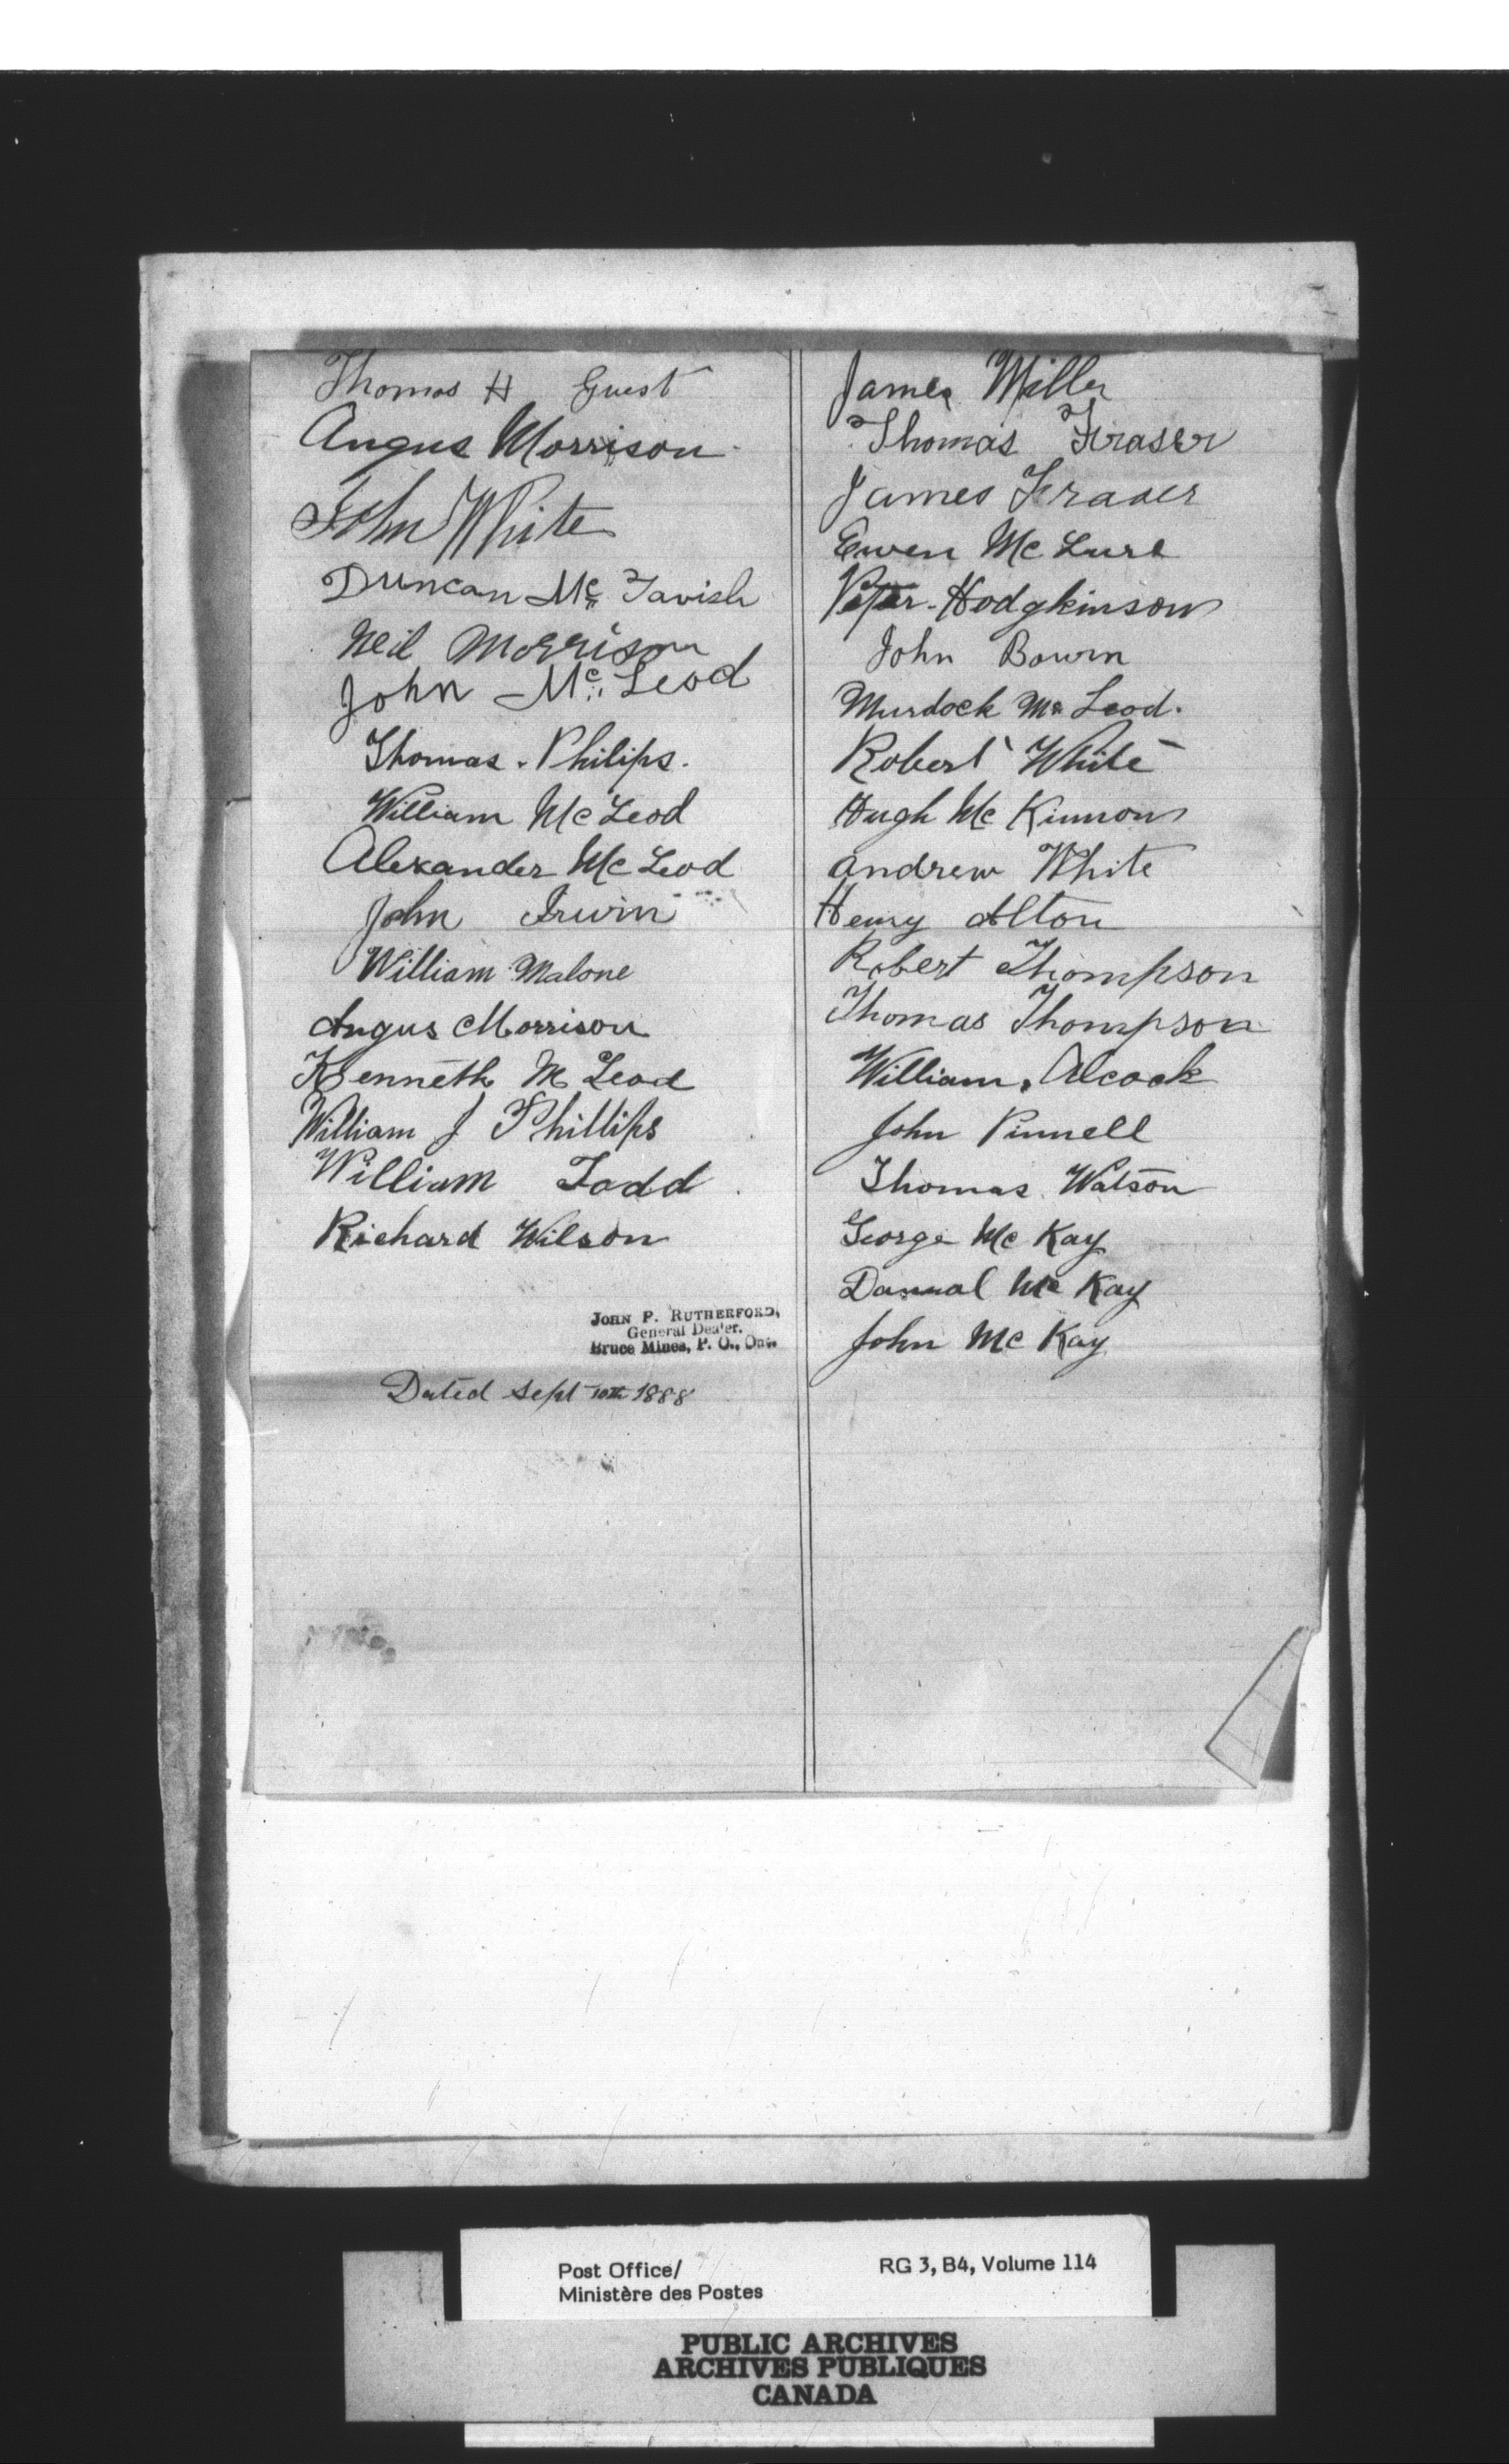 Thomas H Guest
Angus Morrison
John White
Duncan Mc Tavish
Neil Morrison
John Mc Leod
Thomas. Philips.
William Mc Leod
Alexander Mc Leod
John Irwin
William Malone
Angus Morrison
Kenneth Mc Leod
William J Phillips
William Todd
Richard Wilson
JOHN P. RUTHERFORD,
General Dealer.
Bruce Mines, P. O., Ont.
Dated Sept 10th 1888
James Miller
Thomas Fraser
James Fraser
Ewen Mc Lure
Peter. Hodgkinson
John Bowrn
Murdock Mc Leod.
Robert White
Hugh Mc Kinnon
Andrew White
Henry Alton
Robert Thompson
Thomas Thompson
William. Alcock
John Pinnell
Thomas Watson
George Mc Kay
Danual Mc Kay
John Mc Kay
Post Office/
Ministère des Postes
RG 3, B4, Volume 114
PUBLIC ARCHIVES
ARCHIVES PUBLIQUES
CANADA